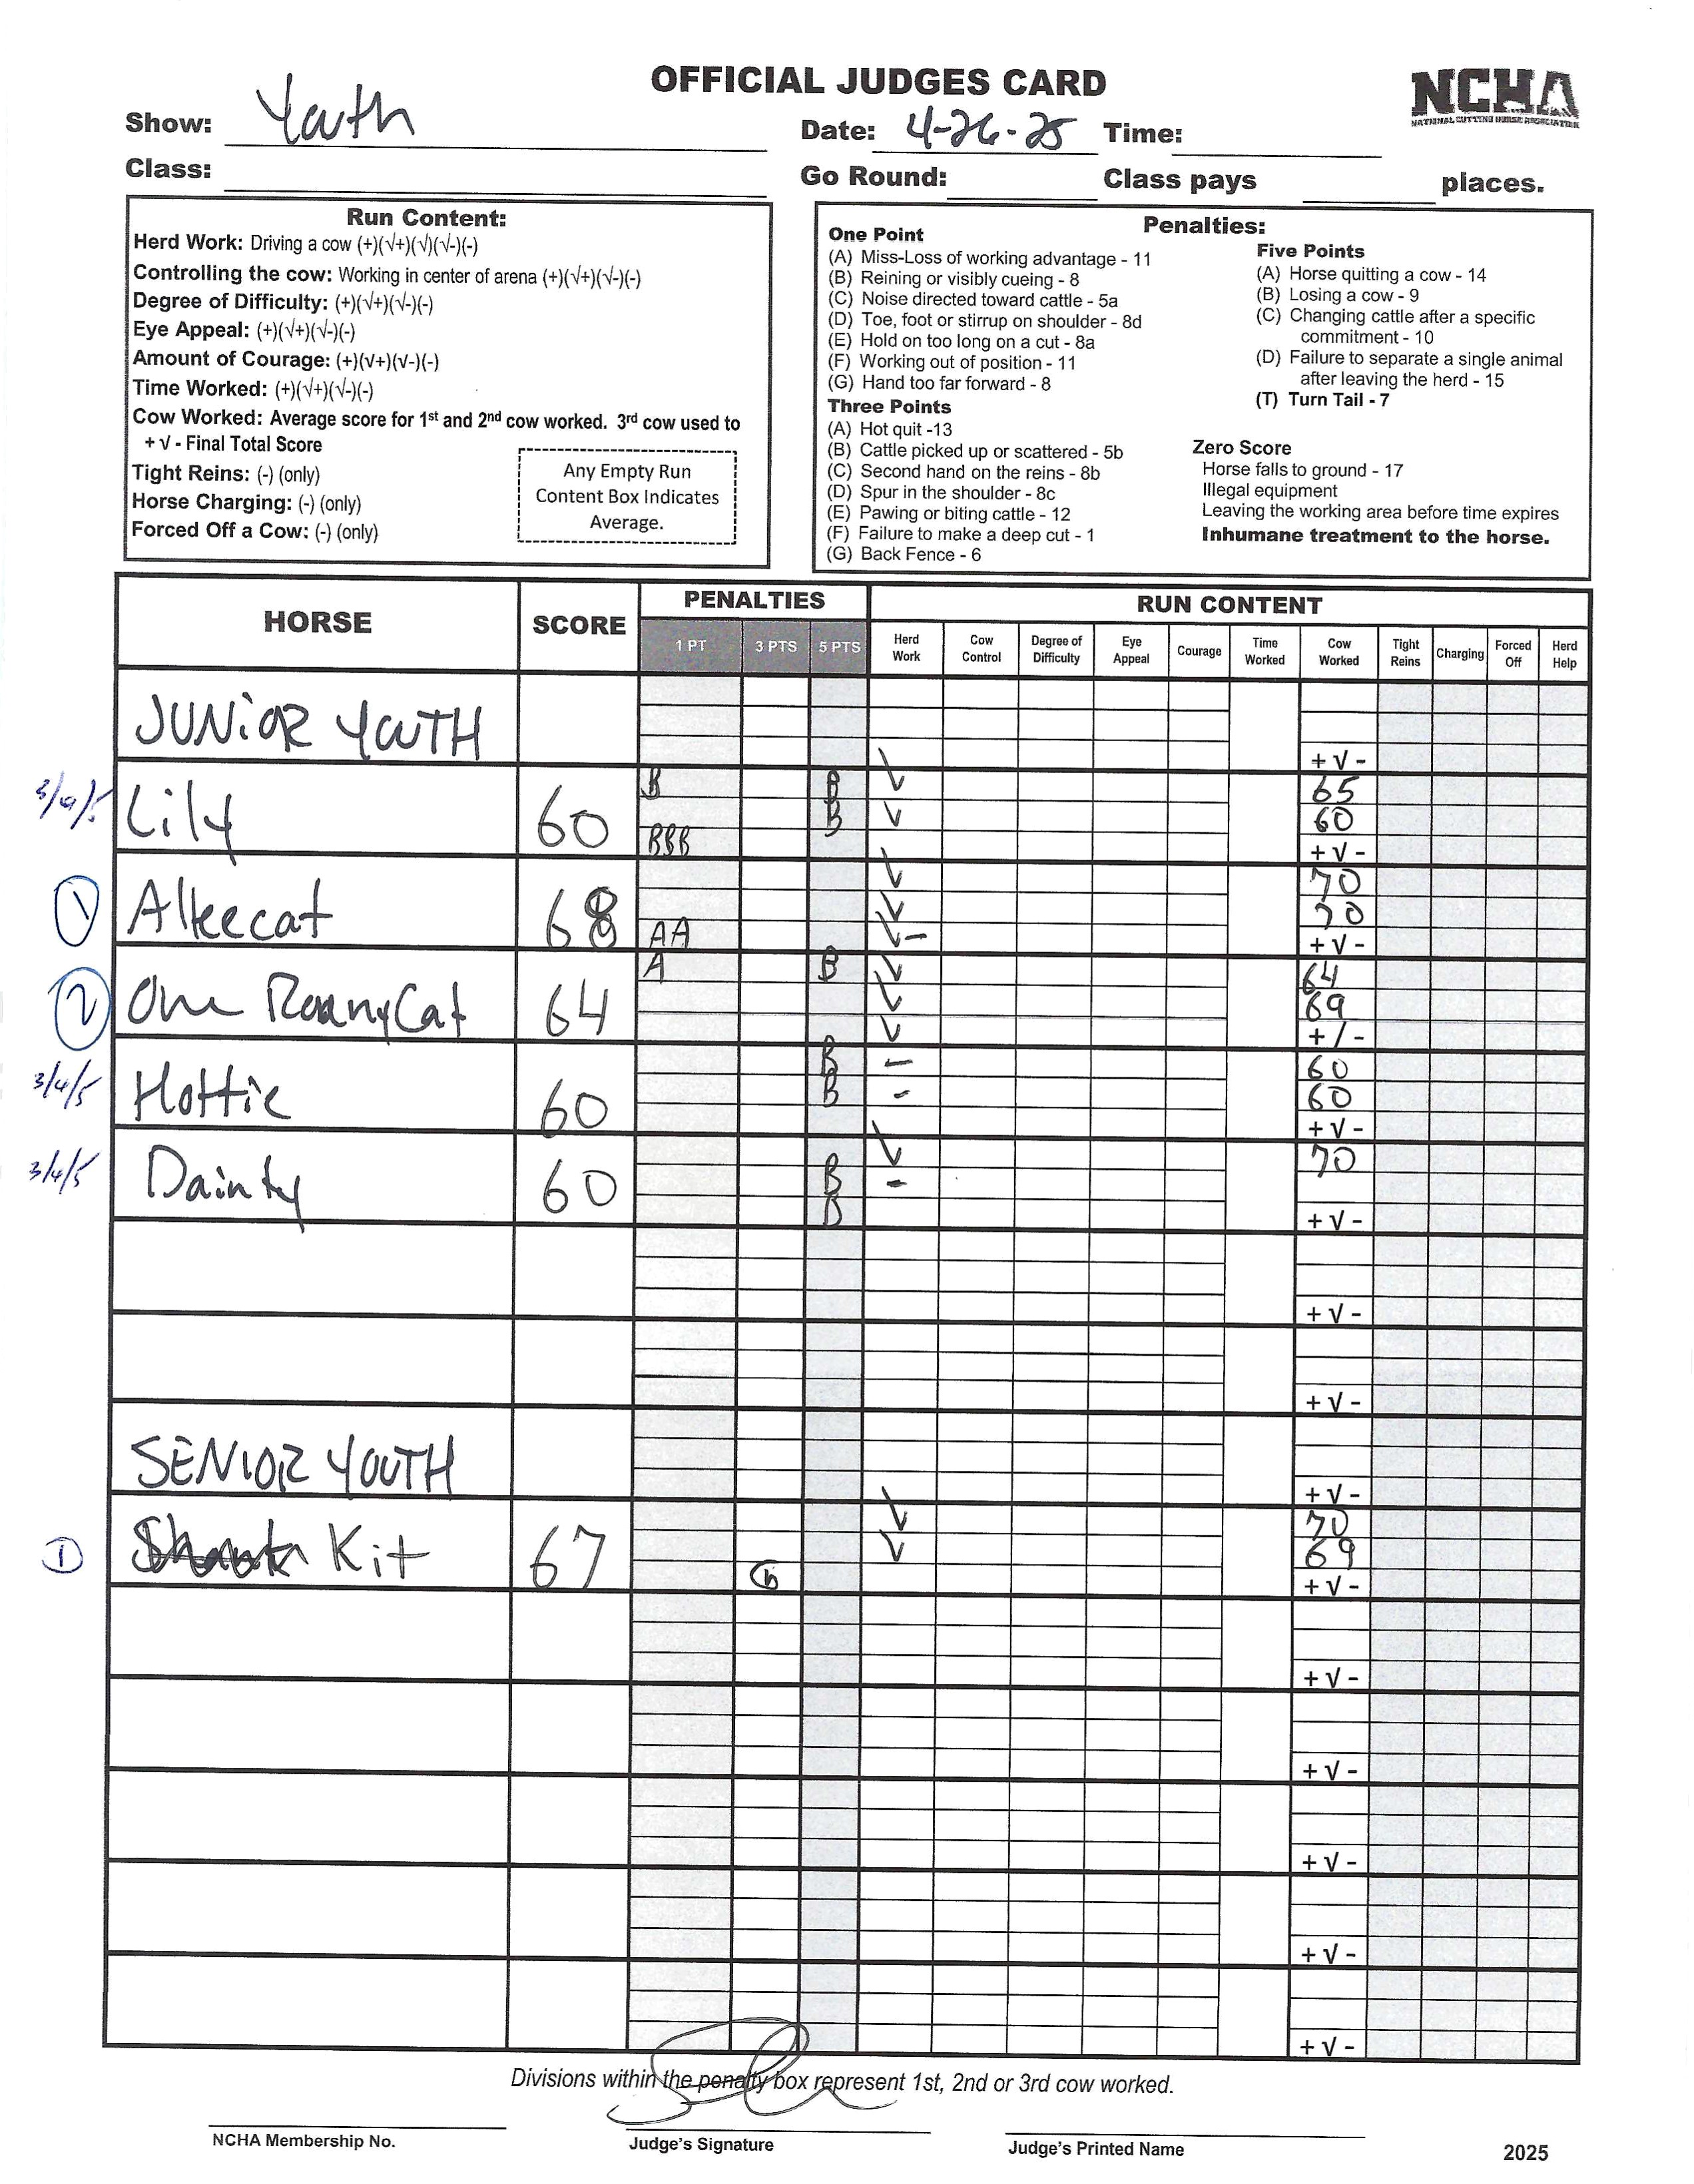 OFFICIAL JUDGES CARD
NCHA
NATIONAL CUTTING HORSE ASSOCIATION
Show: Youth
Date: 4-26-25 Time:
Class:
Go Round: Class pays places.
Run Content:
Herd Work: Driving a cow (+)(√+)(√)(√-)(-)
Controlling the cow: Working in center of arena (+)(√+)(√-)(-)
Degree of Difficulty: (+)(√+)(√-)(-)
Eye Appeal: (+)(√+)(√-)(-)
Amount of Courage: (+)(√+)(√-)(-)
Time Worked: (+)(√+)(√-)(-)
Cow Worked: Average score for 1st and 2nd cow worked. 3rd cow used to
+ √ - Final Total Score
Tight Reins: (-) (only)
Horse Charging: (-) (only)
Forced Off a Cow: (-) (only)
Any Empty Run
Content Box Indicates
Average.
Penalties:
One Point
(A) Miss-Loss of working advantage - 11
(B) Reining or visibly cueing - 8
(C) Noise directed toward cattle - 5a
(D) Toe, foot or stirrup on shoulder - 8d
(E) Hold on too long on a cut - 8a
(F) Working out of position - 11
(G) Hand too far forward - 8
Three Points
(A) Hot quit -13
(B) Cattle picked up or scattered - 5b
(C) Second hand on the reins - 8b
(D) Spur in the shoulder - 8c
(E) Pawing or biting cattle - 12
(F) Failure to make a deep cut - 1
(G) Back Fence - 6
Five Points
(A) Horse quitting a cow - 14
(B) Losing a cow - 9
(C) Changing cattle after a specific
commitment - 10
(D) Failure to separate a single animal
after leaving the herd - 15
(T) Turn Tail - 7
Zero Score
Horse falls to ground - 17
Illegal equipment
Leaving the working area before time expires
Inhumane treatment to the horse.
HORSE SCORE PENALTIES RUN CONTENT
1 PT 3 PTS 5 PTS Herd Work Cow Control Degree of Difficulty Eye Appeal Courage Time Worked Cow Worked Tight Reins Charging Forced Off Herd Help
JUNIOR YOUTH
+ √ -
B B √ 65
3/4/5 Lily 60 B √ 60
BBB + √ -
√ 70
1 Alkeecat 68 √ 70
AA √- + √ -
A B √ 64
2 One RoanyCat 64 √ 69
√ + √ -
B - 60
3/4/5 Hottie 60 B - 60
+ √ -
√ 70
3/4/5 Dainty 60 B -
D + √ -
+ √ -
+ √ -
SENIOR YOUTH
+ √ -
√ 70
1 Kit 67 √ 69
G + √ -
+ √ -
+ √ -
+ √ -
+ √ -
+ √ -
Divisions within the penalty box represent 1st, 2nd or 3rd cow worked.
NCHA Membership No.
Judge's Signature
Judge's Printed Name
2025